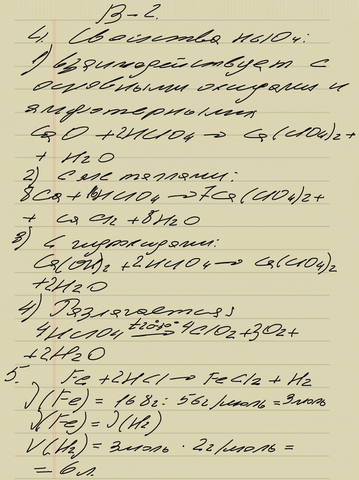 В-2.
4. Свойства HClO4:
1) взаимодействует с
основными оксидами и
амфотерными
CaO + 2HClO4 → Ca(ClO4)2 +
+ H2O
2) С металлами:
8Ca + 16HClO4 → 7Ca(ClO4)2 +
+ CaCl2 + 8H2O
3) С гидроксидами:
Ca(OH)2 + 2HClO4 → Ca(ClO4)2
+2H2O
4) Разлагается:
4HClO4 → 4ClO2 + 3O2 +
+2H2O
5. Fe + 2HCl → FeCl2 + H2
ν(Fe) = 168г : 56г/моль = 3моль
ν(Fe) = ν(H2)
V(H2) = 3моль · 2г/моль =
= 6л.